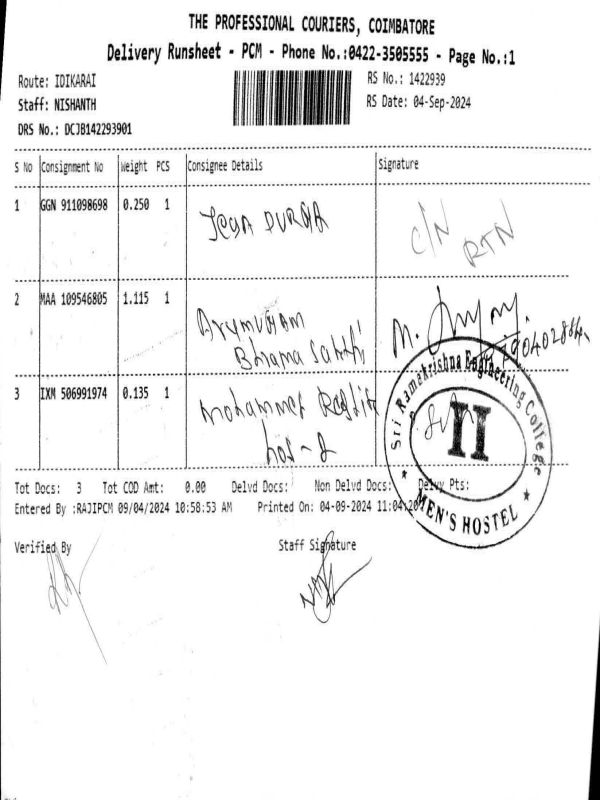 THE PROFESSIONAL COURIERS, COIMBATORE
Delivery Runsheet - PCM - Phone No.:0422-3505555 - Page No.:1
Route: IDIKARAI
RS No.: 1422939
Staff: NISHANTH
RS Date: 04-Sep-2024
DRS No.: DCJB142293901
S No Consignment No Weight PCS Consignee Details Signature
1 GGN 911098698 0.250 1
C/N
RTN
2 MAA 109546805 1.115 1 Arumugam
M.
3 IXM 506991974 0.135 1 Mohammed
hos-2
Tot Docs: 3 Tot COD Amt: 0.00 Delvd Docs: Non Delvd Docs: Delvy Pts:
Entered By :RAJIPCM 09/04/2024 10:58:53 AM Printed On: 04-09-2024
Verified By Staff Signature
Sri Ramakrishna Engineering College
II
MEN'S HOSTEL